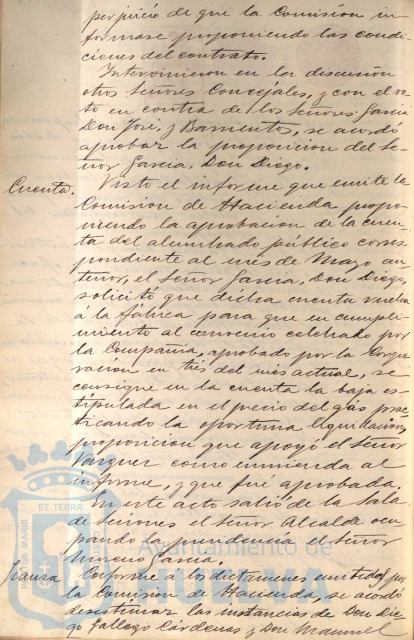 perjuicio de que la Comisión in
formase proponiendo las condi
ciones del contrato.
Intervinieron en la discusión
otros Señores Concejales, y con el vo
to en contra de los Señores García
Don José, y Barrientos, se acordó
aprobar la proposicion del Se
ñor García, Don Diego.
Cuenta. Visto el informe que emite la
Comision de Hacienda propo
niendo la aprobacion de la cuen
ta del alumbrado público corres
pondiente al mes de Mayo an
terior, el Señor García, Don Diego,
solicitó que dicha cuenta vuelva
a la fábrica para que en cumpli
miento al convenio celebrado por
la Compañia, aprobado por la Corpo
racion en tres del mes actual, se
consigne en la cuenta la baja es
tipulada en el precio del gás prac
ticando la oportuna liquidacion,
proposicion que apoyó el Señor
Vazquez como enmienda al
informe, y que fué aprobada.
En este acto salió de la Sala
de Sesiones el Señor Alcalde ocu
pando la presidencia el Señor
Moreno García.
Conforme á los dictamenes emitidos por
la Comision de Hacienda, se acordó
desestimar las instancias de Don Die
go Gallego Cárdenas y Don Manuel
PORTUS MARIS ET TERRÆ
Ayuntamiento de